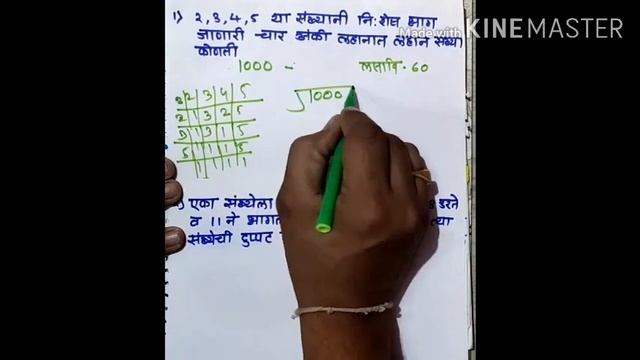 Made with KINEMASTER
1) 2, 3, 4, 5 या संख्यानी नि:शेष भाग
जाणारी चार अंकी लहानात लहान संख्या
कोणती
1000 - लसावि. 60
2 2 3 4 5
2 1 3 2 5
3 1 3 1 5
5 1 1 1 5
1 1 1 1
1000
एका संख्येला 8 ने
व 11 ने भागल
संख्येची दुप्पट